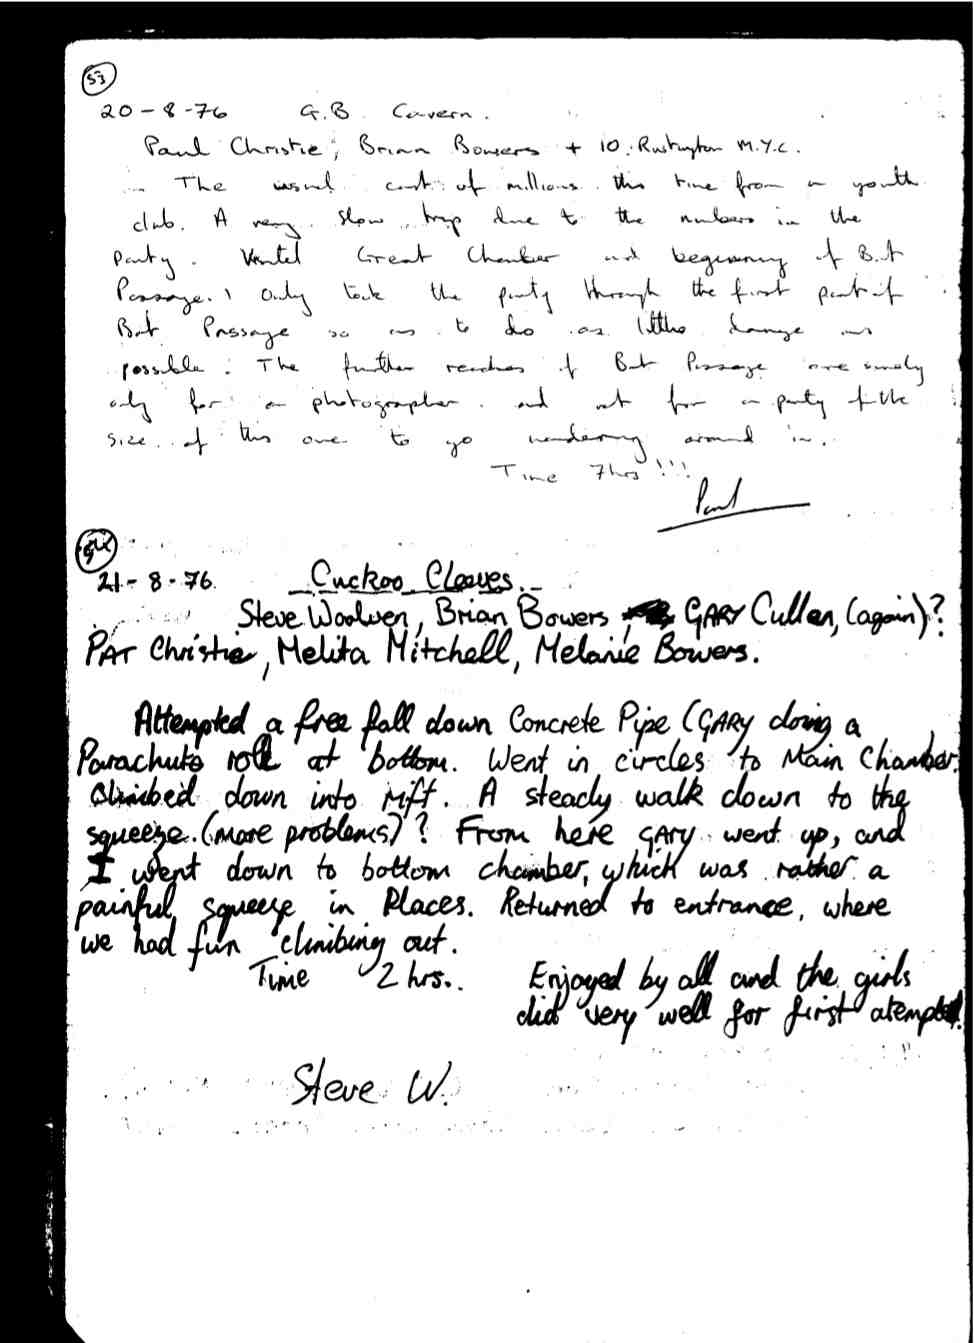 53
20-8-76 G.B. Cavern.
Paul Christie, Brian Bowers + 10. Rustington M.Y.C.
The usual cast of millions this time from a youth
club. A very slow trip due to the numbers in the
Party. Visited Great Chamber and beginning of Bat
Passage. I only took the party through the first part of
Bat Passage so as to do as little damage as
possible. The further reaches of Bat Passage are surely
only for a photographer and not for a party of the
size of this one to go wandering around in.
Time 7hrs!!!
Paul
54
21-8-76. Cuckoo Cleeves.
Steve Woolven, Brian Bowers, GARY Cullen, (again)?
PAT Christie, Melita Mitchell, Melanie Bowers.
Attempted a free fall down Concrete Pipe (GARY doing a
Parachute roll at bottom. Went in circles to Main Chamber.
Climbed down into rift. A steady walk down to the
squeeze. (more problems)? From here GARY went up, and
I went down to bottom chamber, which was rather a
painful squeeze in Places. Returned to entrance, where
we had fun climbing out.
Time 2 hrs.. Enjoyed by all and the girls
did very well for first atempt.
Steve W.